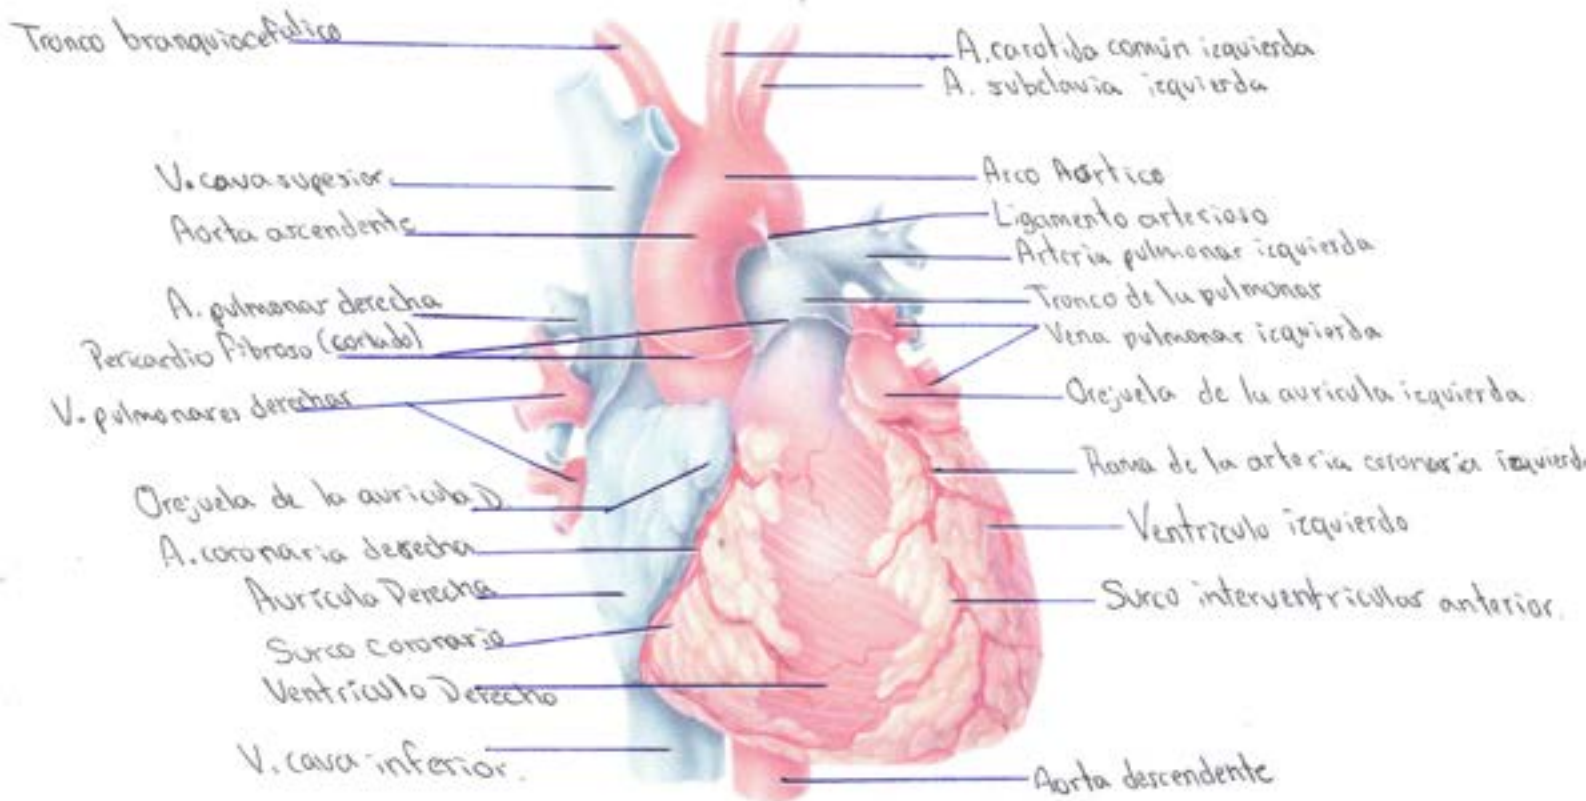 Tronco branquiocefalico
V. cava superior.
Aorta ascendente
A. pulmonar derecha
Pericardio Fibroso (cortado)
V. pulmonares derechas
Orejuela de la auricula D.
A. coronaria derecha
Aurícula Derecha
Surco coronario
Ventrículo Derecho
V. cava inferior.
A. carotida común izquierda
A. subclavia izquierda
Arco Aórtico
Ligamento arterioso
Arteria pulmonar izquierda
Tronco de la pulmonar
Vena pulmonar izquierda
Orejuela de la auricula izquierda
Rama de la arteria coronaria izquierda
Ventrículo izquierdo
Surco interventricular anterior.
Aorta descendente